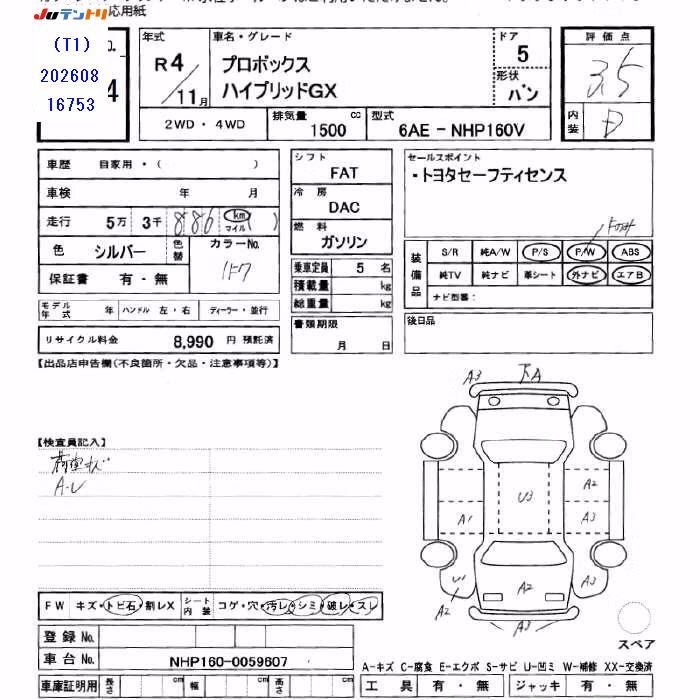 応用紙
Juテントリ
(T1)
202608
16753
No.
4
年式
R4/11月
車名・グレード
プロボックス
ハイブリッドGX
ドア
5
形状
バン
評価点
3.5
内装
D
2WD ・ 4WD
排気量
1500
cc
型式
6AE - NHP160V
車歴 自家用・( )
車検 年 月
走行 5万 3千 886 km マイル ( )
色 シルバー 色替 カラーNo. 1F7
保証書 有・無
モデル年式 年 ハンドル 左・右 ディーラー・並行
リサイクル料金 8,990 円 預託済
シフト
FAT
冷房
DAC
燃料
ガソリン
乗車定員 5 名
積載量 kg
総重量 kg
書類期限
月 日
セールスポイント
・トヨタセーフティセンス
装備品
S/R 純A/W P/S P/W ABS
純TV 純ナビ 革シート 外ナビ エアB
ナビ型番:
後日品
【出品店申告欄(不良箇所・欠品・注意事項等)】
【検査員記入】
A・U
A3 下A
U3
A2
A1 A3
U1 A2 A2 A3
A3
FW キズ・トビ石・割レX シート内装 コゲ・穴・汚レ・シミ・破レ・スレ
登録 No.
車台 No. NHP160-0059607
車庫証明用 長さ cm 幅 cm 高さ cm
スペア
A-キズ C-腐食 E-エクボ S-サビ U-凹ミ W-補修 XX-交換済
工具 有・無 ジャッキ 有・無